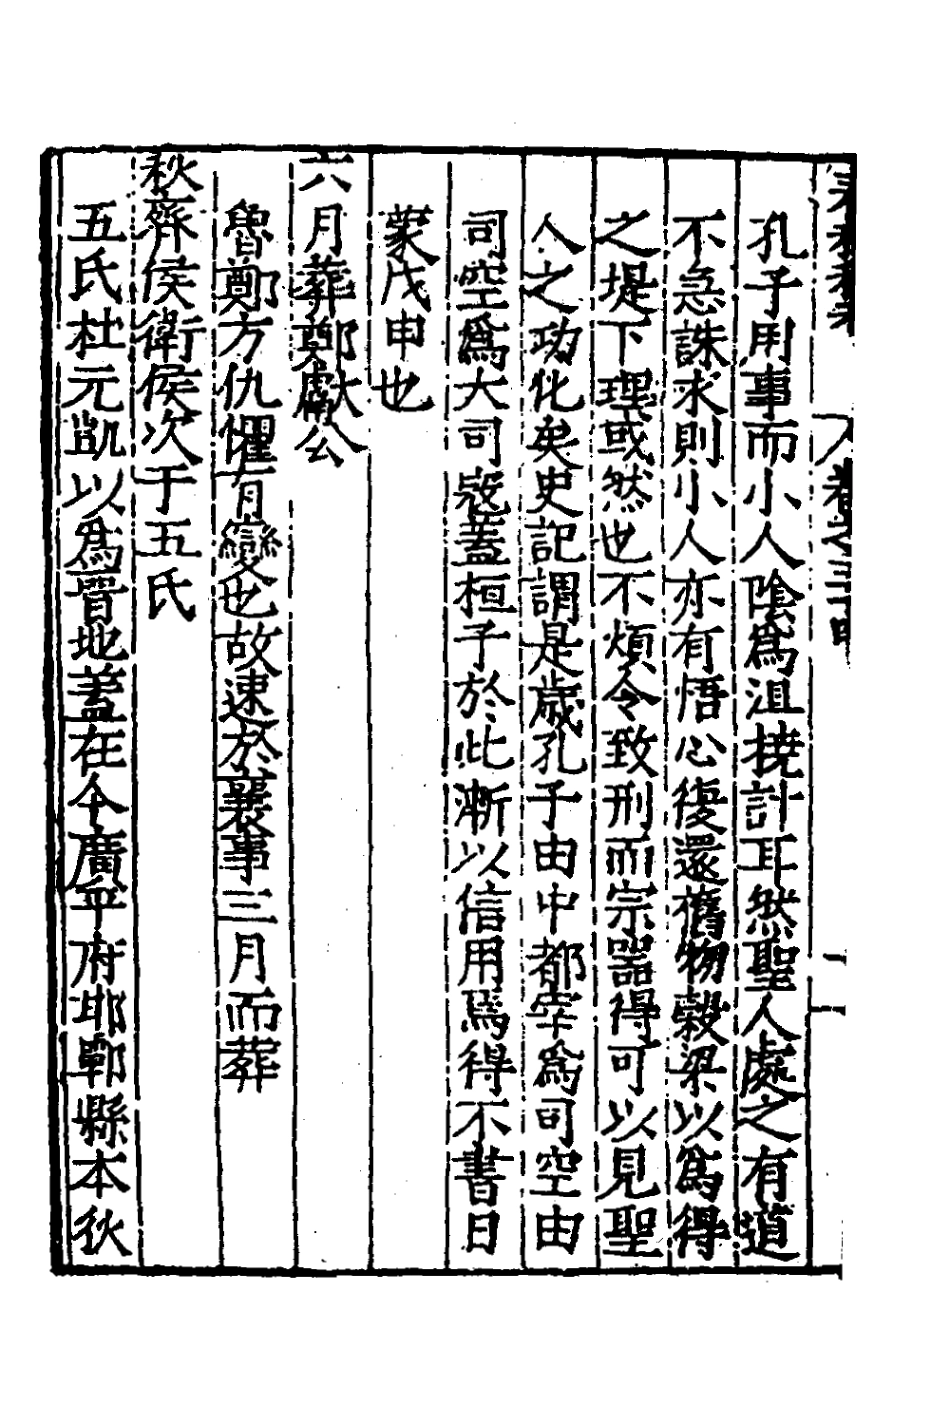 孔子用事而小人陰爲沮撓計耳然聖人處之有道
不急誅求則小人亦有悟心復還舊物穀梁以爲得
之堤下理或然也不煩令致刑而宗器得可以見聖
人之功化矣史記謂是歲孔子由中都宰爲司空由
司空爲大司寇蓋桓子於此漸以信用焉得不書日
蒙戊申也
六月葬鄭獻公
魯鄭方仇懼有變也故速於襄事三月而葬
秋齊侯衛侯次于五氏
五氏杜元凱以爲晉地蓋在今廣平府邯鄲縣本狄